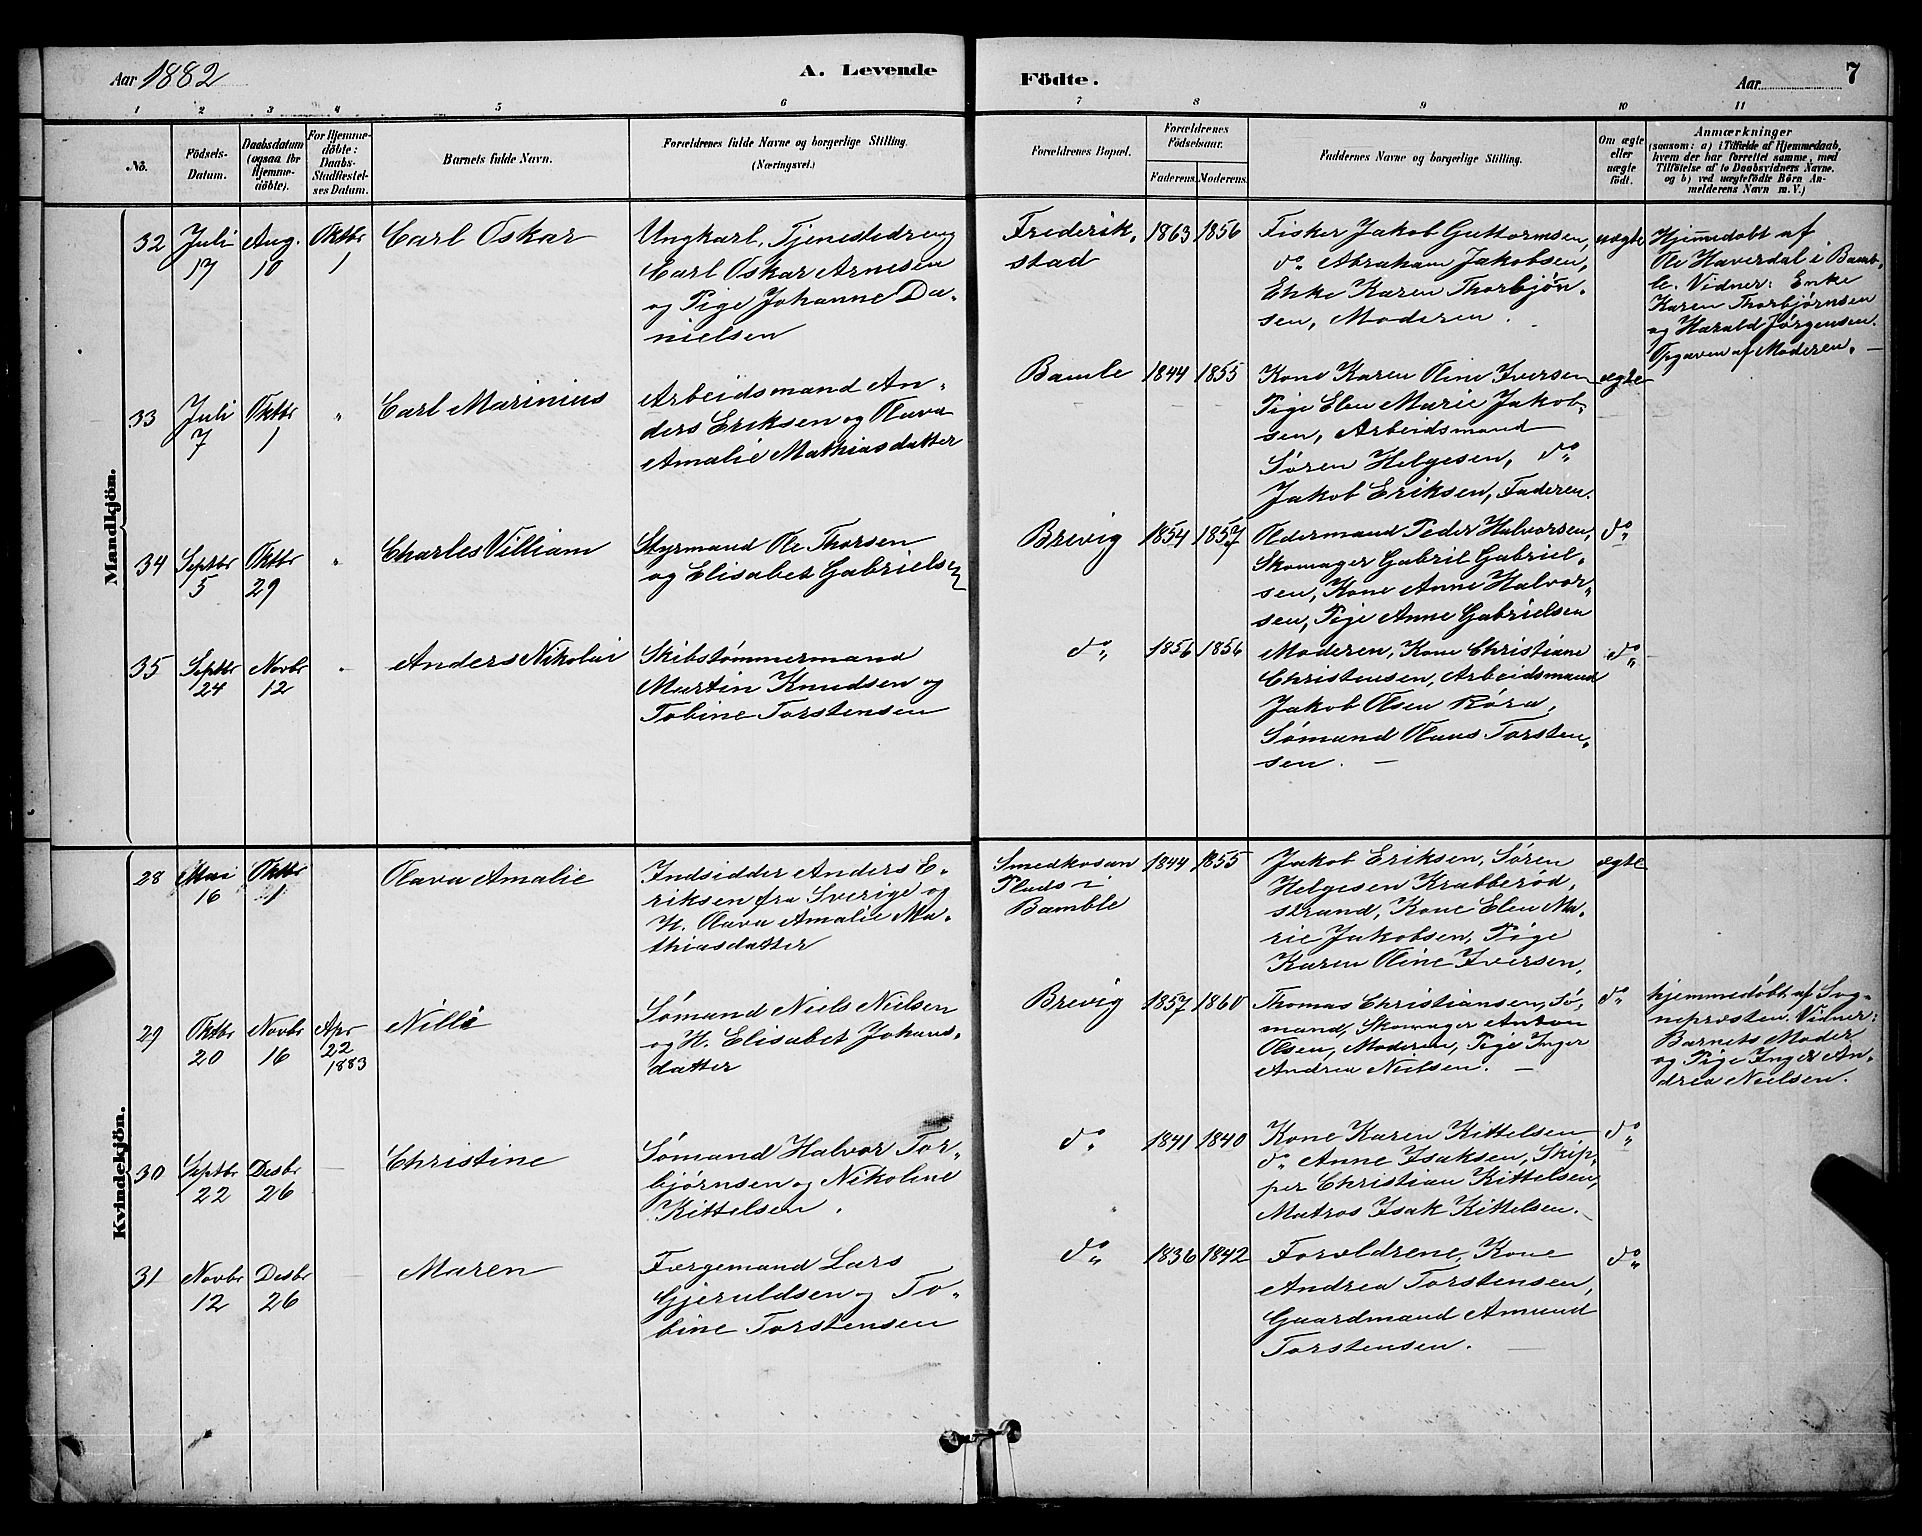 Aar 1882
A. Levende
Födte.
Aar
7
1 2 3 4 5 6 7 8 9 10 11
Nö.
Födsels-
Datum.
Daabsdatum
(ogsaa for
Hjemme-
döbte).
For Hjemme-
döbte:
Daabs-
Stadfæstel-
ses Datum.
Barnets fulde Navn.
Forældrenes fulde Navne og borgerlige Stilling.
(Næringsvei.)
Forældrenes Bopæl.
Forældrenes
Födselsaar.
Faderens. Moderens.
Faddernes Navne og borgerlige Stilling.
Om ægte
eller
uægte
födt.
Anmærkninger
(saasom: a) i Tilfælde af Hjemmedaab,
hvem der har forrettet samme, med
Tilföielse af to Daabsvidners Navne.
og b) ved uægtefödte Börn An-
melderens Navn m. V.)
Mandkjön.
32
Juli
17
Aug.
10
Oktbr
1
Carl Oskar
Ungkarl, Tjenestedreng
Carl Oskar Arnesen
og Pige Johanne Da-
nielsen
Frederik-
stad
1863 1856
Fisker Jakob Guttormsen,
do Abraham Jakobsen,
Enke Karen Thorbjörn-
sen, Moderen.
uægte
Hjemmedöbt af
Ole Haverdal i Bamb-
le. Vidner: Enke
Karen Thorbjörnsen
og Harald Jörgensen.
Opgaven af Moderen. —
33
Juli
7
Oktbr
1
"
Carl Marinius
Arbeidsmand An-
ders Eriksen og Olava
Amalie Mathiasdatter
Bamle
1844 1855
Kone Karen Oline Iversen
Pige Elen Marie Jakob-
sen, Arbeidsmand
Sören Helgesen, do
Jakob Eriksen, Faderen.
ægte
34
Septbr
5
Oktbr
29
"
Charles Villiam
Styrmand Ole Thorsen
og Elisabet Gabrielsen
Brevig
1854 1857
Oldermand Peder Halvorsen,
Skomager Gabril Gabriel-
sen, Kone Anne Halvor-
sen, Pige Anne Gabrielsen
do
35
Septbr
24
Novbr
12
Anders Nikolai
Skibstömmermand
Martin Knudsen og
Tobine Torstensen
do
1856 1856
Moderen, Kone Christiane
Christensen, Arbeidsmand
Jakob Olsen Röra,
Sömand Olaus Torsten-
sen. —
do
Kvindekjön.
28
Mai
16
Oktbr
1
Olava Amalie
Indsidder Anders E-
riksen fra Sverige og
H. Olava Amalie Ma-
thiasdatter
Plads i
Bamble
1844 1855
Jakob Eriksen, Sören
Helgesen Krabberöd-
strand, Kone Elen Ma-
rie Jakobsen, Pige
Karen Oline Iversen,
ægte
29
Oktbr
20
Novbr
16
Apr
22
1883
Nilli
Sömand Niels Nielsen
og H. Elisabet Johans-
datter
Brevig
1857 1860
Thomas Christiansen, Sö-
mand, Skomager Anton
Olsen, Moderen, Pige Inger
Andrea Nielsen. —
do
hjemmedöbt af Sog-
nepresten. Vidner:
Barnets Moder
og Pige Inger An-
drea Nielsen.
30
Septbr
22
Desbr
26
Christine
Sömand Halvor Tor-
björnsen og Nikoline
Kittelsen.
do
1841 1840
Kone Karen Kittelsen
do Anne Isaksen, Skip-
per Christian Kittelsen,
Matros Isak Kittelsen.
do
31
Novbr
12
Desbr
26
Maren
Færgemand Lars
Gjeruldsen og To-
bine Torstensen
do
1836 1842
Forældrene, Kone
Andrea Torstensen,
Gaardmand Amund
Torstensen.
do